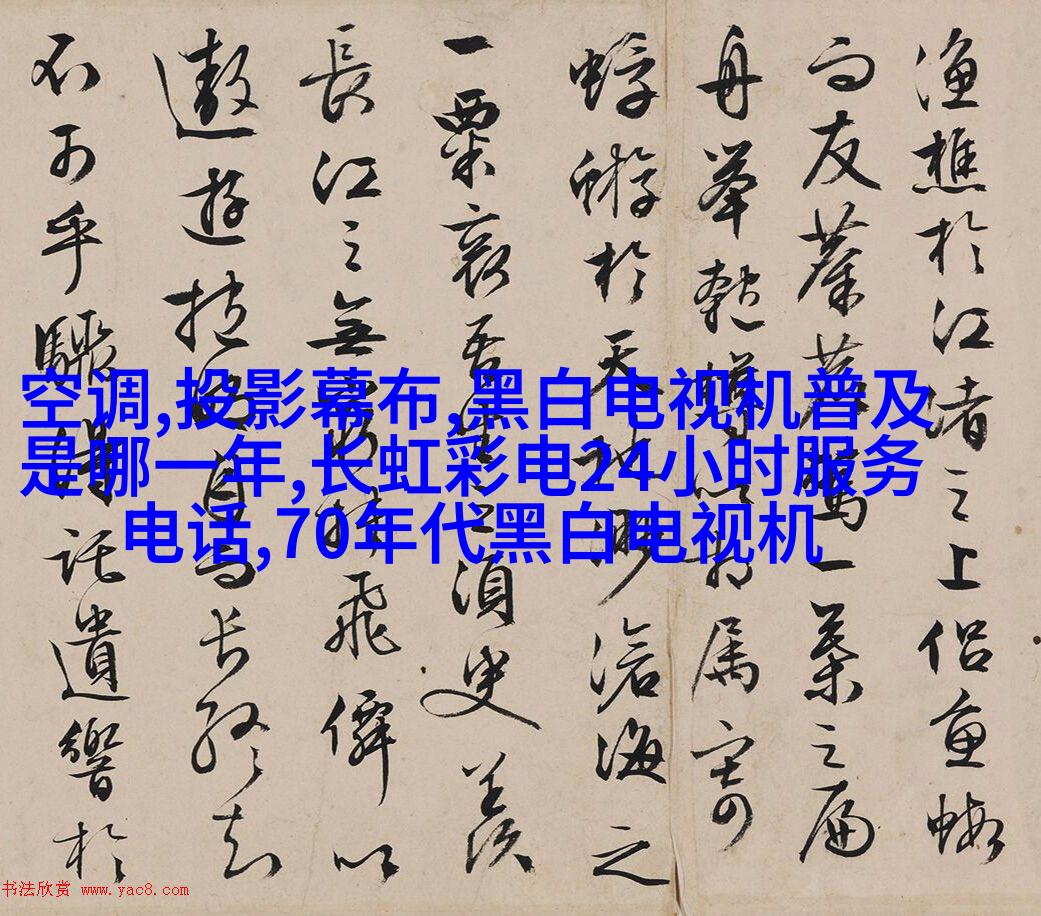 漁樵於江渚之上侣魚蝦
而友麋鹿駕一葉之扁
舟舉匏樽以相属寄
蜉蝣於天地渺滄海之
一粟哀吾生之須臾羨
長江之無窮挾飛僊以
遨遊抱明月而長終知
不可乎驟得託遺響於
空调,投影幕布,黑白电视机普及
是哪一年,长虹彩电24小时服务
电话,70年代黑白电视机
书法欣赏 www.yac8.com